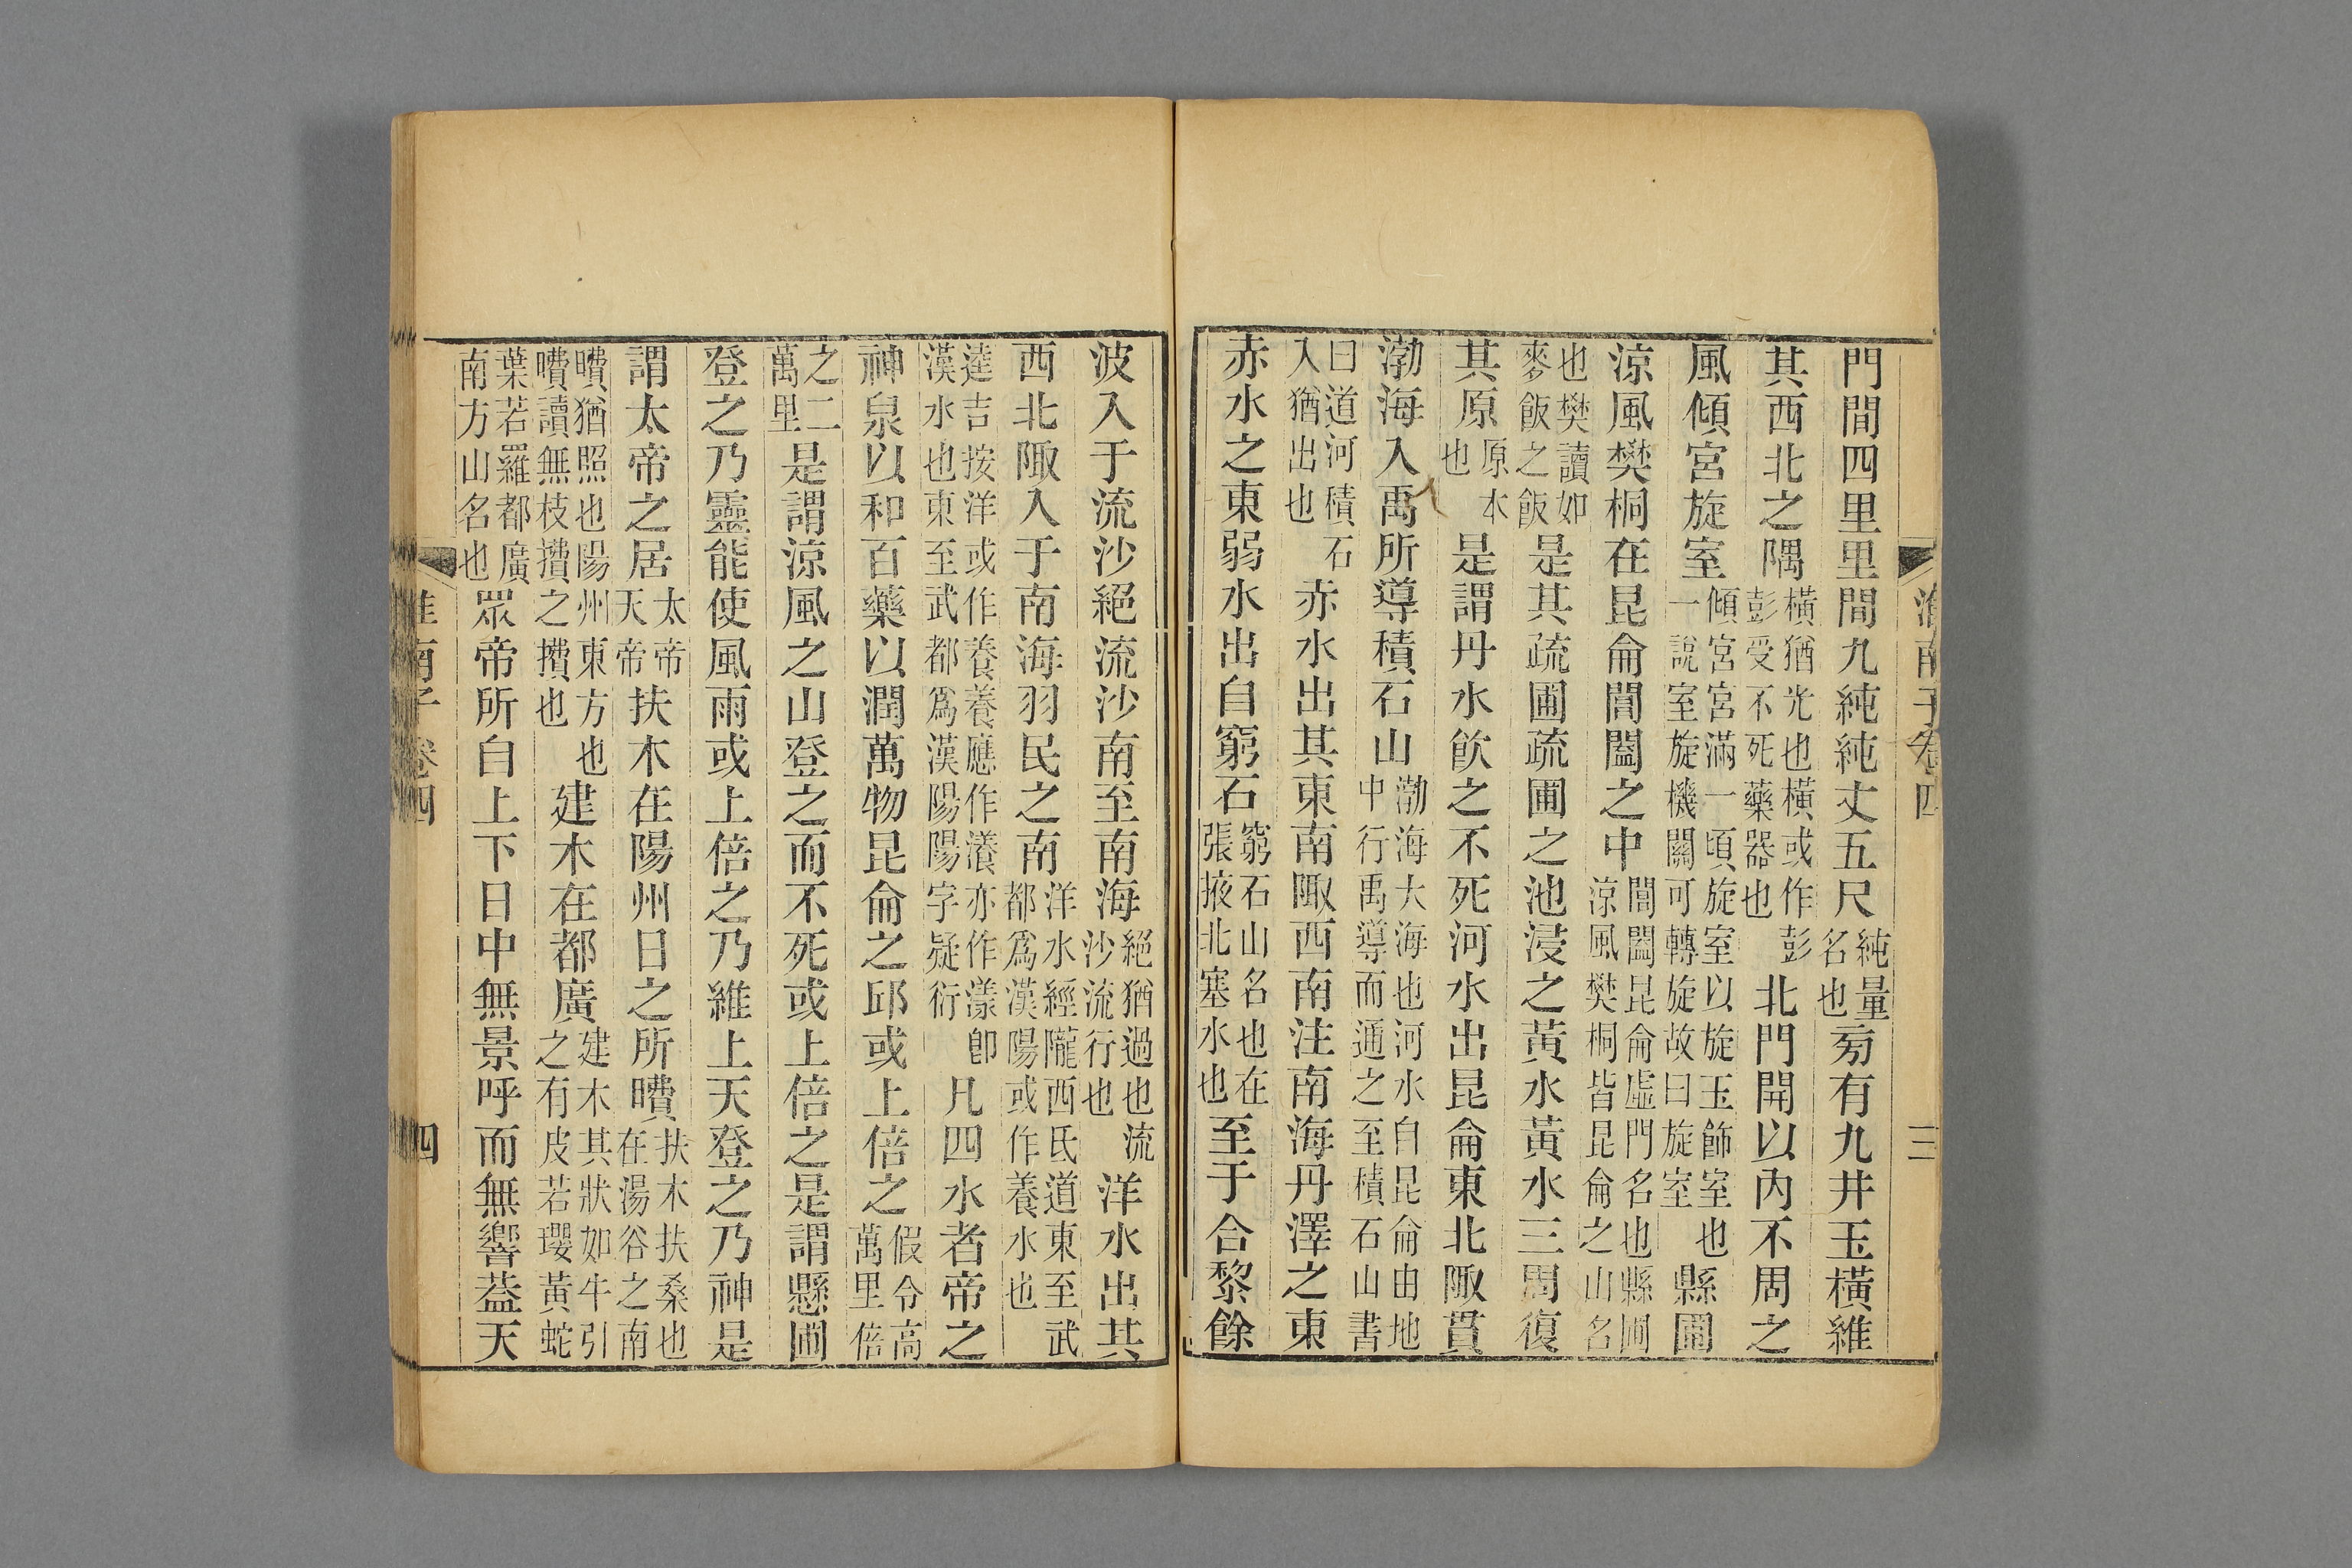 門間四里里間九純純丈五尺純量名也旁有九井玉橫維
其西北之隅橫猶光也橫或作彭彭受不死藥器也北門開以內不周之
風傾宮旋室傾宮宮滿一頃旋室以旋玉飾室也一說室旋機關可轉旋故曰旋室縣圃
涼風樊桐在昆侖閶闔之中閶闔昆侖虛門名也縣圃涼風樊桐皆昆侖之山名
也樊讀如麥飯之飯是其疏圃疏圃之池浸之黃水黃水三周復
其原原本也是謂丹水飲之不死河水出昆侖東北陬貫
渤海入禹所導積石山渤海大海也河水自昆侖由地中行禹導而通之至積石山書
曰道河積石入猶出也赤水出其東南陬西南注南海丹澤之東
赤水之東弱水出自窮石窮石山名也在張掖北塞水也至于合黎餘
淮南子卷四
三
波入于流沙絕流沙南至南海絕猶過也流沙流行也洋水出其
西北陬入于南海羽民之南洋水經隴西氐道東至武都爲漢陽或作養水也
達吉按洋或作養養應作瀁亦作漾卽漢水也東至武都爲漢陽陽字疑衍凡四水者帝之
神泉以和百藥以潤萬物昆侖之邱或上倍之假令高萬里倍
之二萬里是謂涼風之山登之而不死或上倍之是謂懸圃
登之乃靈能使風雨或上倍之乃維上天登之乃神是
謂太帝之居太帝天帝扶木在陽州日之所曊扶木扶桑也在湯谷之南
曊猶照也陽州東方也曊讀無枝攢之攢也建木在都廣建木其狀如牛引之有皮若瓔黃蛇
葉若羅都廣南方山名也眾帝所自上下日中無景呼而無響葢天
淮南子 卷四
四